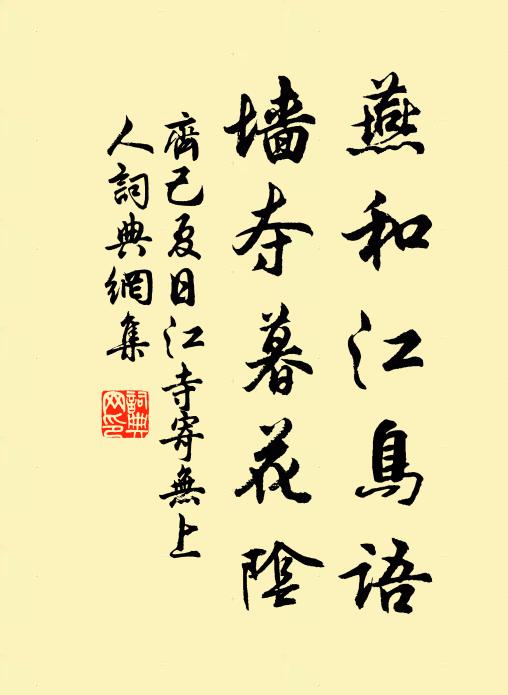 燕和江鳥語
墙夺暮花陰
齊己夏日江寺寄無上
人詞典網集
詞典
网印